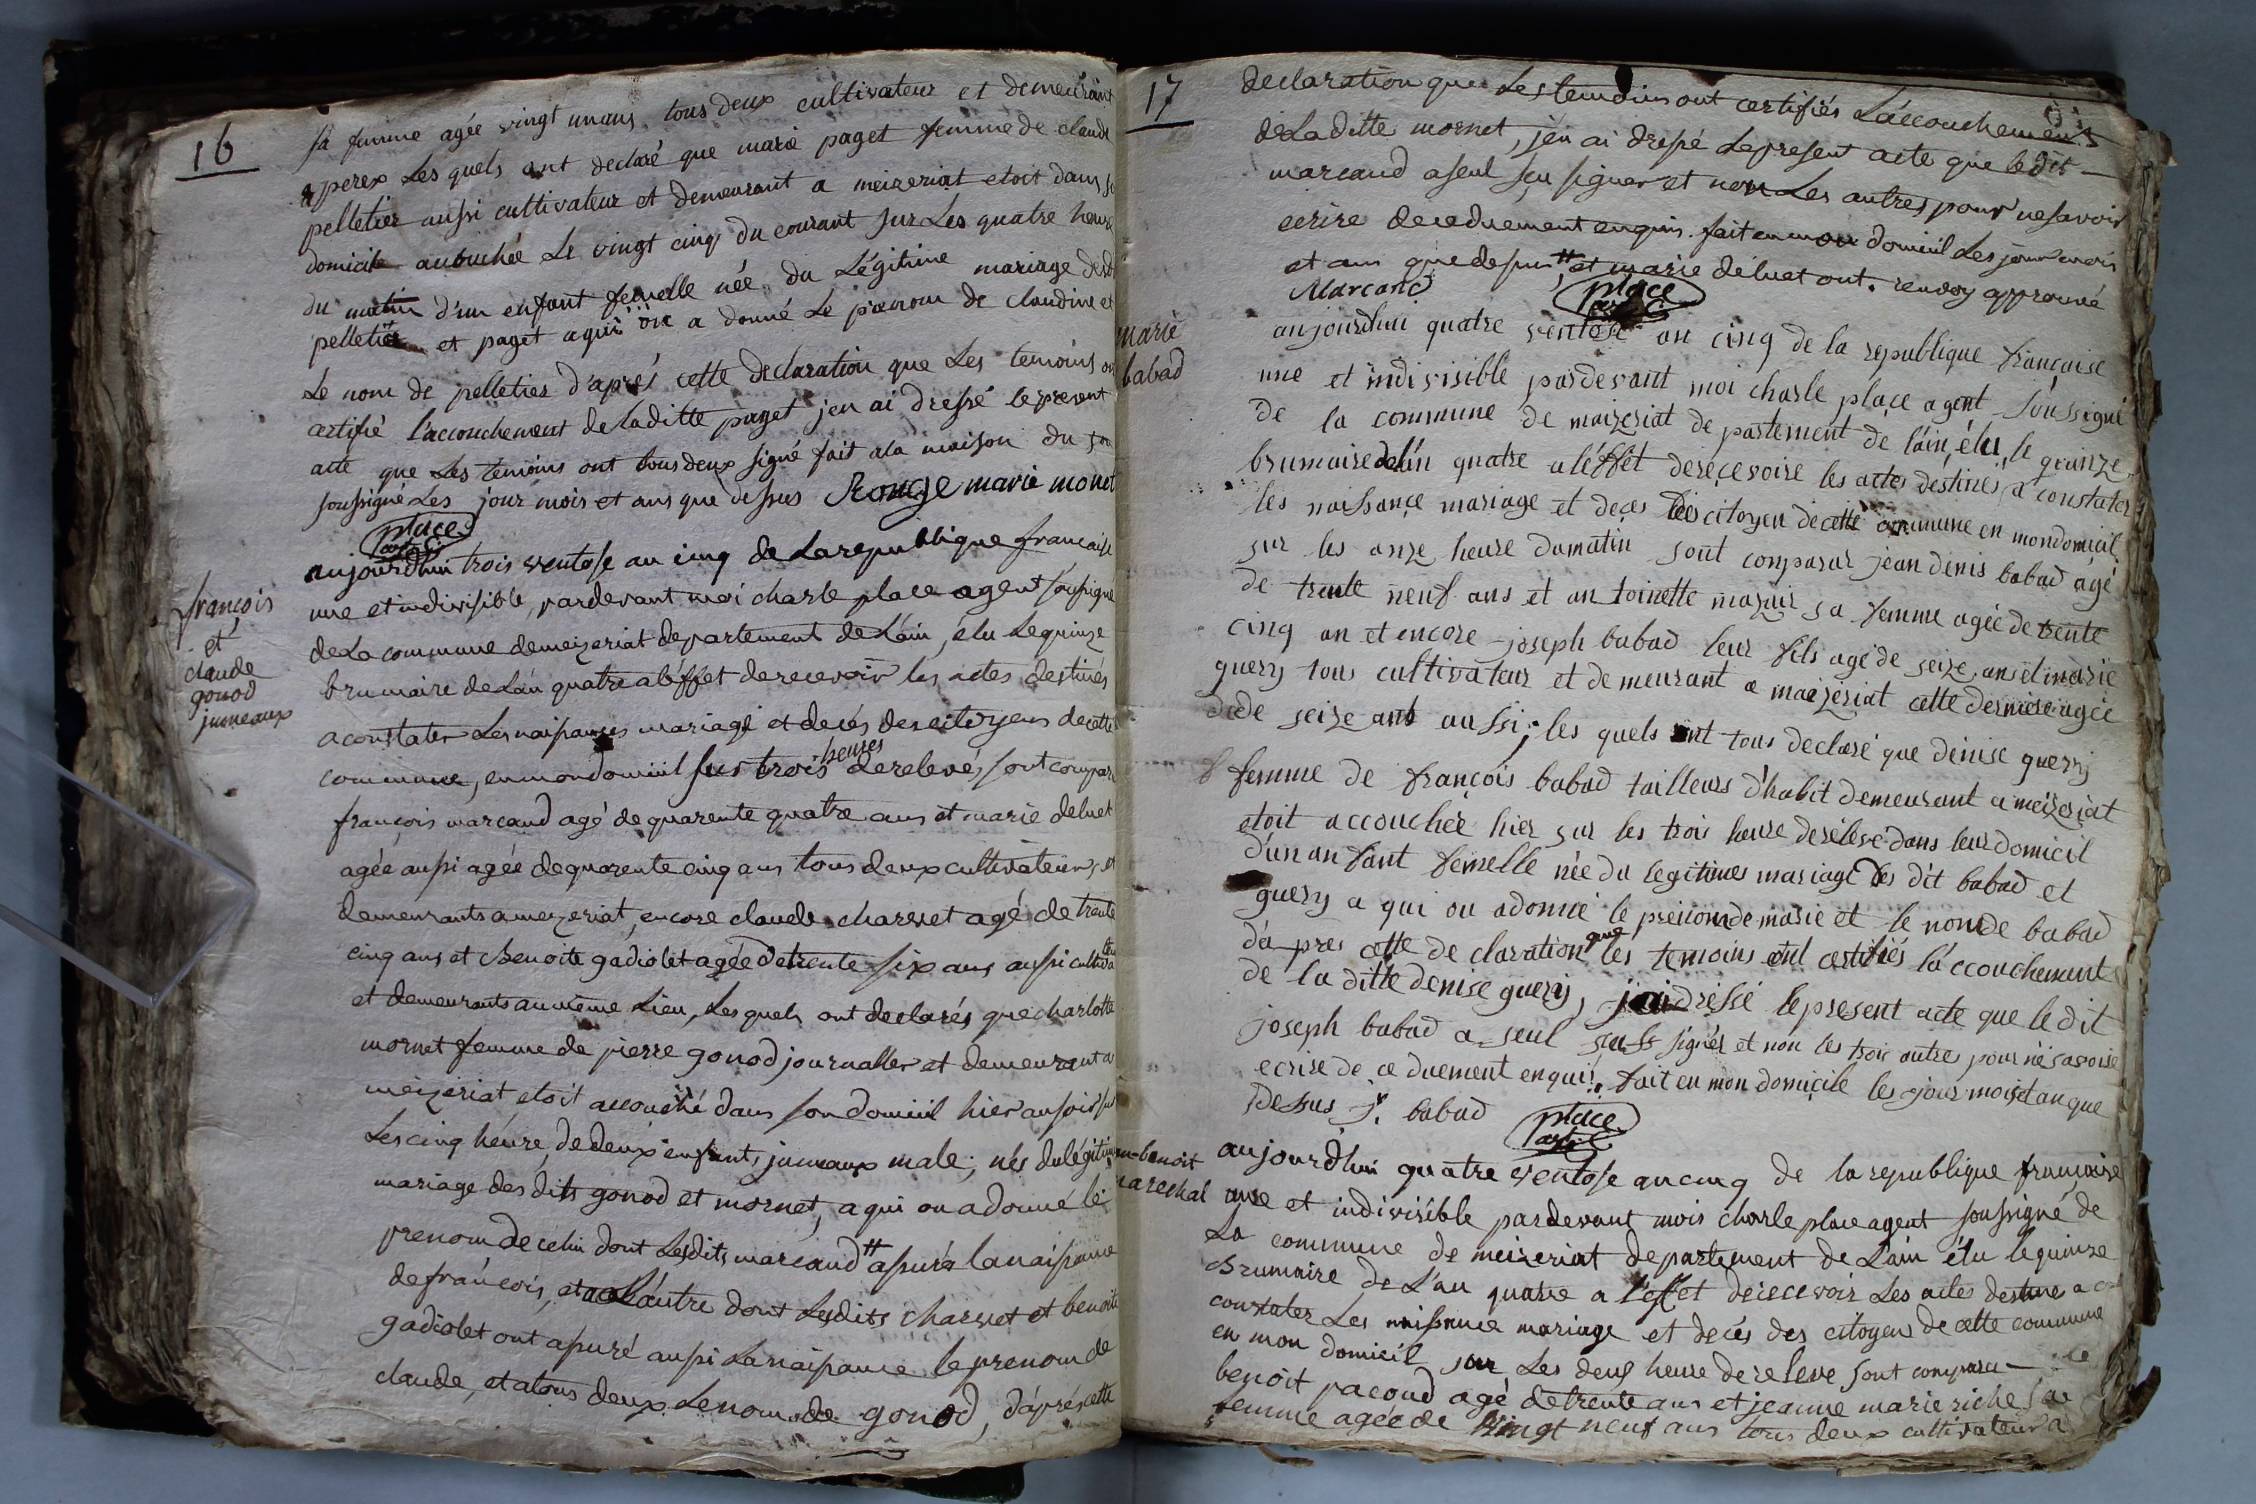 16
sa femme agée vingt un ans tous deux cultivateur et demeurant
a perex Les quels ont declaré que marie paget femme de claude
pelletier aussi cultivateur et demeurant a meizeriat etoit dans
domicile acouchée Le vingt cinq du courant sur Les quatre heure
du matin d'un enfant femelle née du Légitime mariage desd
pelletier et paget a qui on a donné Le prenom de claudine et
Le nom de pelletier d'aprés cette declaration que Les temoins on
certifié l'accouchement de laditte paget jen ai dressé le present
acte que Les temoins ont tous deux signé fait ala maison du
soussigné Les jour mois et ans que dessus Rouge marie monet
place
aujourdhui trois ventose an cinq de La republique francaise
une et indivisible, pardevant moi charle place agent soussigné
de La commune de meizeriat departement de L'ain, élu Le quinze
brumaire de L'an quatre a l'éffet de recevoir les actes destinés
a constater Les naissances mariage et decés des citoyens de cette
commune, en mon domicil sus trois heures de relevé, sont compar
françois marcand agé de quarente quatre ans et marie deluet
agée aussi agée de quarente cinq ans tous deux cultivateurs et
demeurants a meyzeriat, encore claude charvet agé de trente
cinq ans et Benoite gadiolet agée de trente six ans aussi cultiva
et demeurants au même Lieu, Les quels ont declarés que charlotte
mornet femme de pierre gonod journallier et demeurant a
meizeriat etoit accouché dans son domicil hier au soir sur
Les cinq héure, de deux enfant, jumeaux male, nés du légitime
mariage des dits gonod et mornet, a qui on a donné le
prenom de célui dont Lesdits marcand # assuré la naissance
de françois, et a L'autre dont Lesdits charvet et benoite
gadiolet ont assuré aussi La naissance le prenom de
claude, et a tous deux Le nom de gonod, d'aprés cette
françois
et
claude
gonod
jumeaux
17
declaration que Les temoins ont certifiés L'accouchement
de La ditte mornet, j'en ai dressé Le present acte que le dit
marcand a seul sçu signer et non Les autres pour ne savoir
ecrire de ce duement enquis. fait en mon domicil Les jour mois
et ans que dessus, # et marie deluet ont. renvoy approuvé
Marcand place
marie
babad
aujourdhui quatre ventose an cinq de la republique francaise
une et indivisible pardevant moi charle place agent soussigné
de la commune de maizeriat departement de l'ain, élu le quinze
brumaire de l'an quatre a l'éffét de reçevoire les actes destinés a constater
les naissance mariage et deces des citoyen de cette commune en mon domicil
sur les onze heure du matin sont comparur jean denis babad agé
de trente neuf ans et antoinette mazuir sa femme agée de trente
cinq an et encore joseph babad leur fils agé de seize ans et marie
guerry tous cultivateur et demeurant a maizeriat cette derniere agée
de seize ans aussi; les quels ont tous declaré que denise guerry
femme de françois babad tailleurs d'habit demeurant a meizeriat
etoit accouchée hier sur les trois heure de rélevé dans leur domicil
d'un anfant femelle née du legitimes mariage des dit babad et
guery a qui on a donné le prenom de marie et le nom de babad
d'apres cette declaration que les temoins ont certifiés l'accouchement
de la ditte denise guery, j'ai dressé le present acte que le dit
joseph babad a seul sçu signér et non les trois autres pour né savoire
ecrise de ce duement enquis. fait en mon domicile les jour mois et an que
dessus j. babad place
benoit
marechal
aujourdhui quatre ventose an cinq de la republique francaise
une et indivisible pardevant mois charle place agent soussigné de
La commune de meizeriat departement de L'ain élu le quinze
Brumaire de L'an quatre a l'effet de recevoir Les actes destiné a
constater Les naissance mariage et decés des citoyens de cette commune
en mon domicil sur Les deux heure de releve sont comparu
benoit pacoud agé de trente ans et jeanne marie riche sa
femme agée de vingt neuf ans tous deux cultivateur a